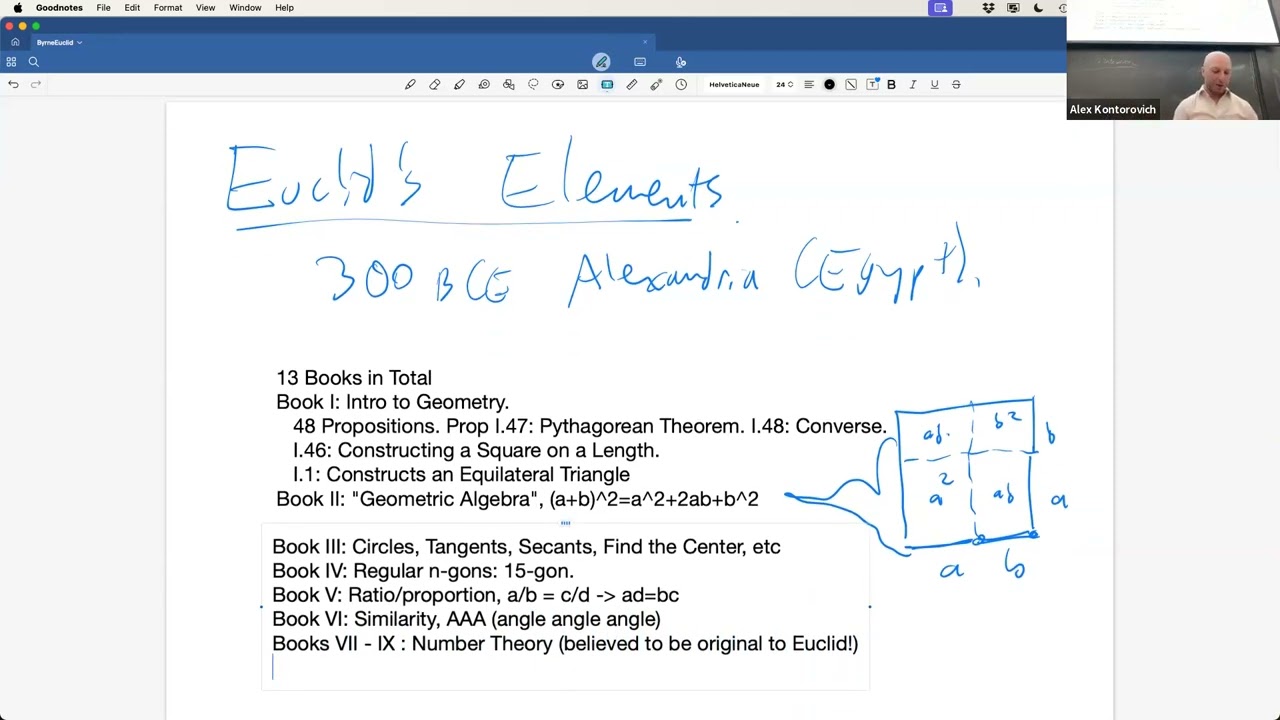 Goodnotes File Edit Format View Window Help
ByrneEuclid
HelveticaNeue 24 B I U S
Alex Kontorovich
Euclid's Elements.
300 BCE Alexandria (Egypt).
13 Books in Total
Book I: Intro to Geometry.
48 Propositions. Prop I.47: Pythagorean Theorem. I.48: Converse.
I.46: Constructing a Square on a Length.
I.1: Constructs an Equilateral Triangle
Book II: "Geometric Algebra", (a+b)^2=a^2+2ab+b^2
ab. b² b
a² ab a
a b
Book III: Circles, Tangents, Secants, Find the Center, etc
Book IV: Regular n-gons: 15-gon.
Book V: Ratio/proportion, a/b = c/d -> ad=bc
Book VI: Similarity, AAA (angle angle angle)
Books VII - IX : Number Theory (believed to be original to Euclid!)